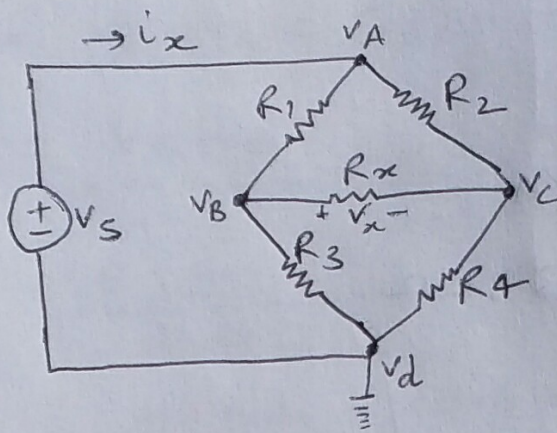 → ix
VA
R1
R2
Rx
VB
+ Vx -
VC
+
-
Vs
R3
R4
Vd